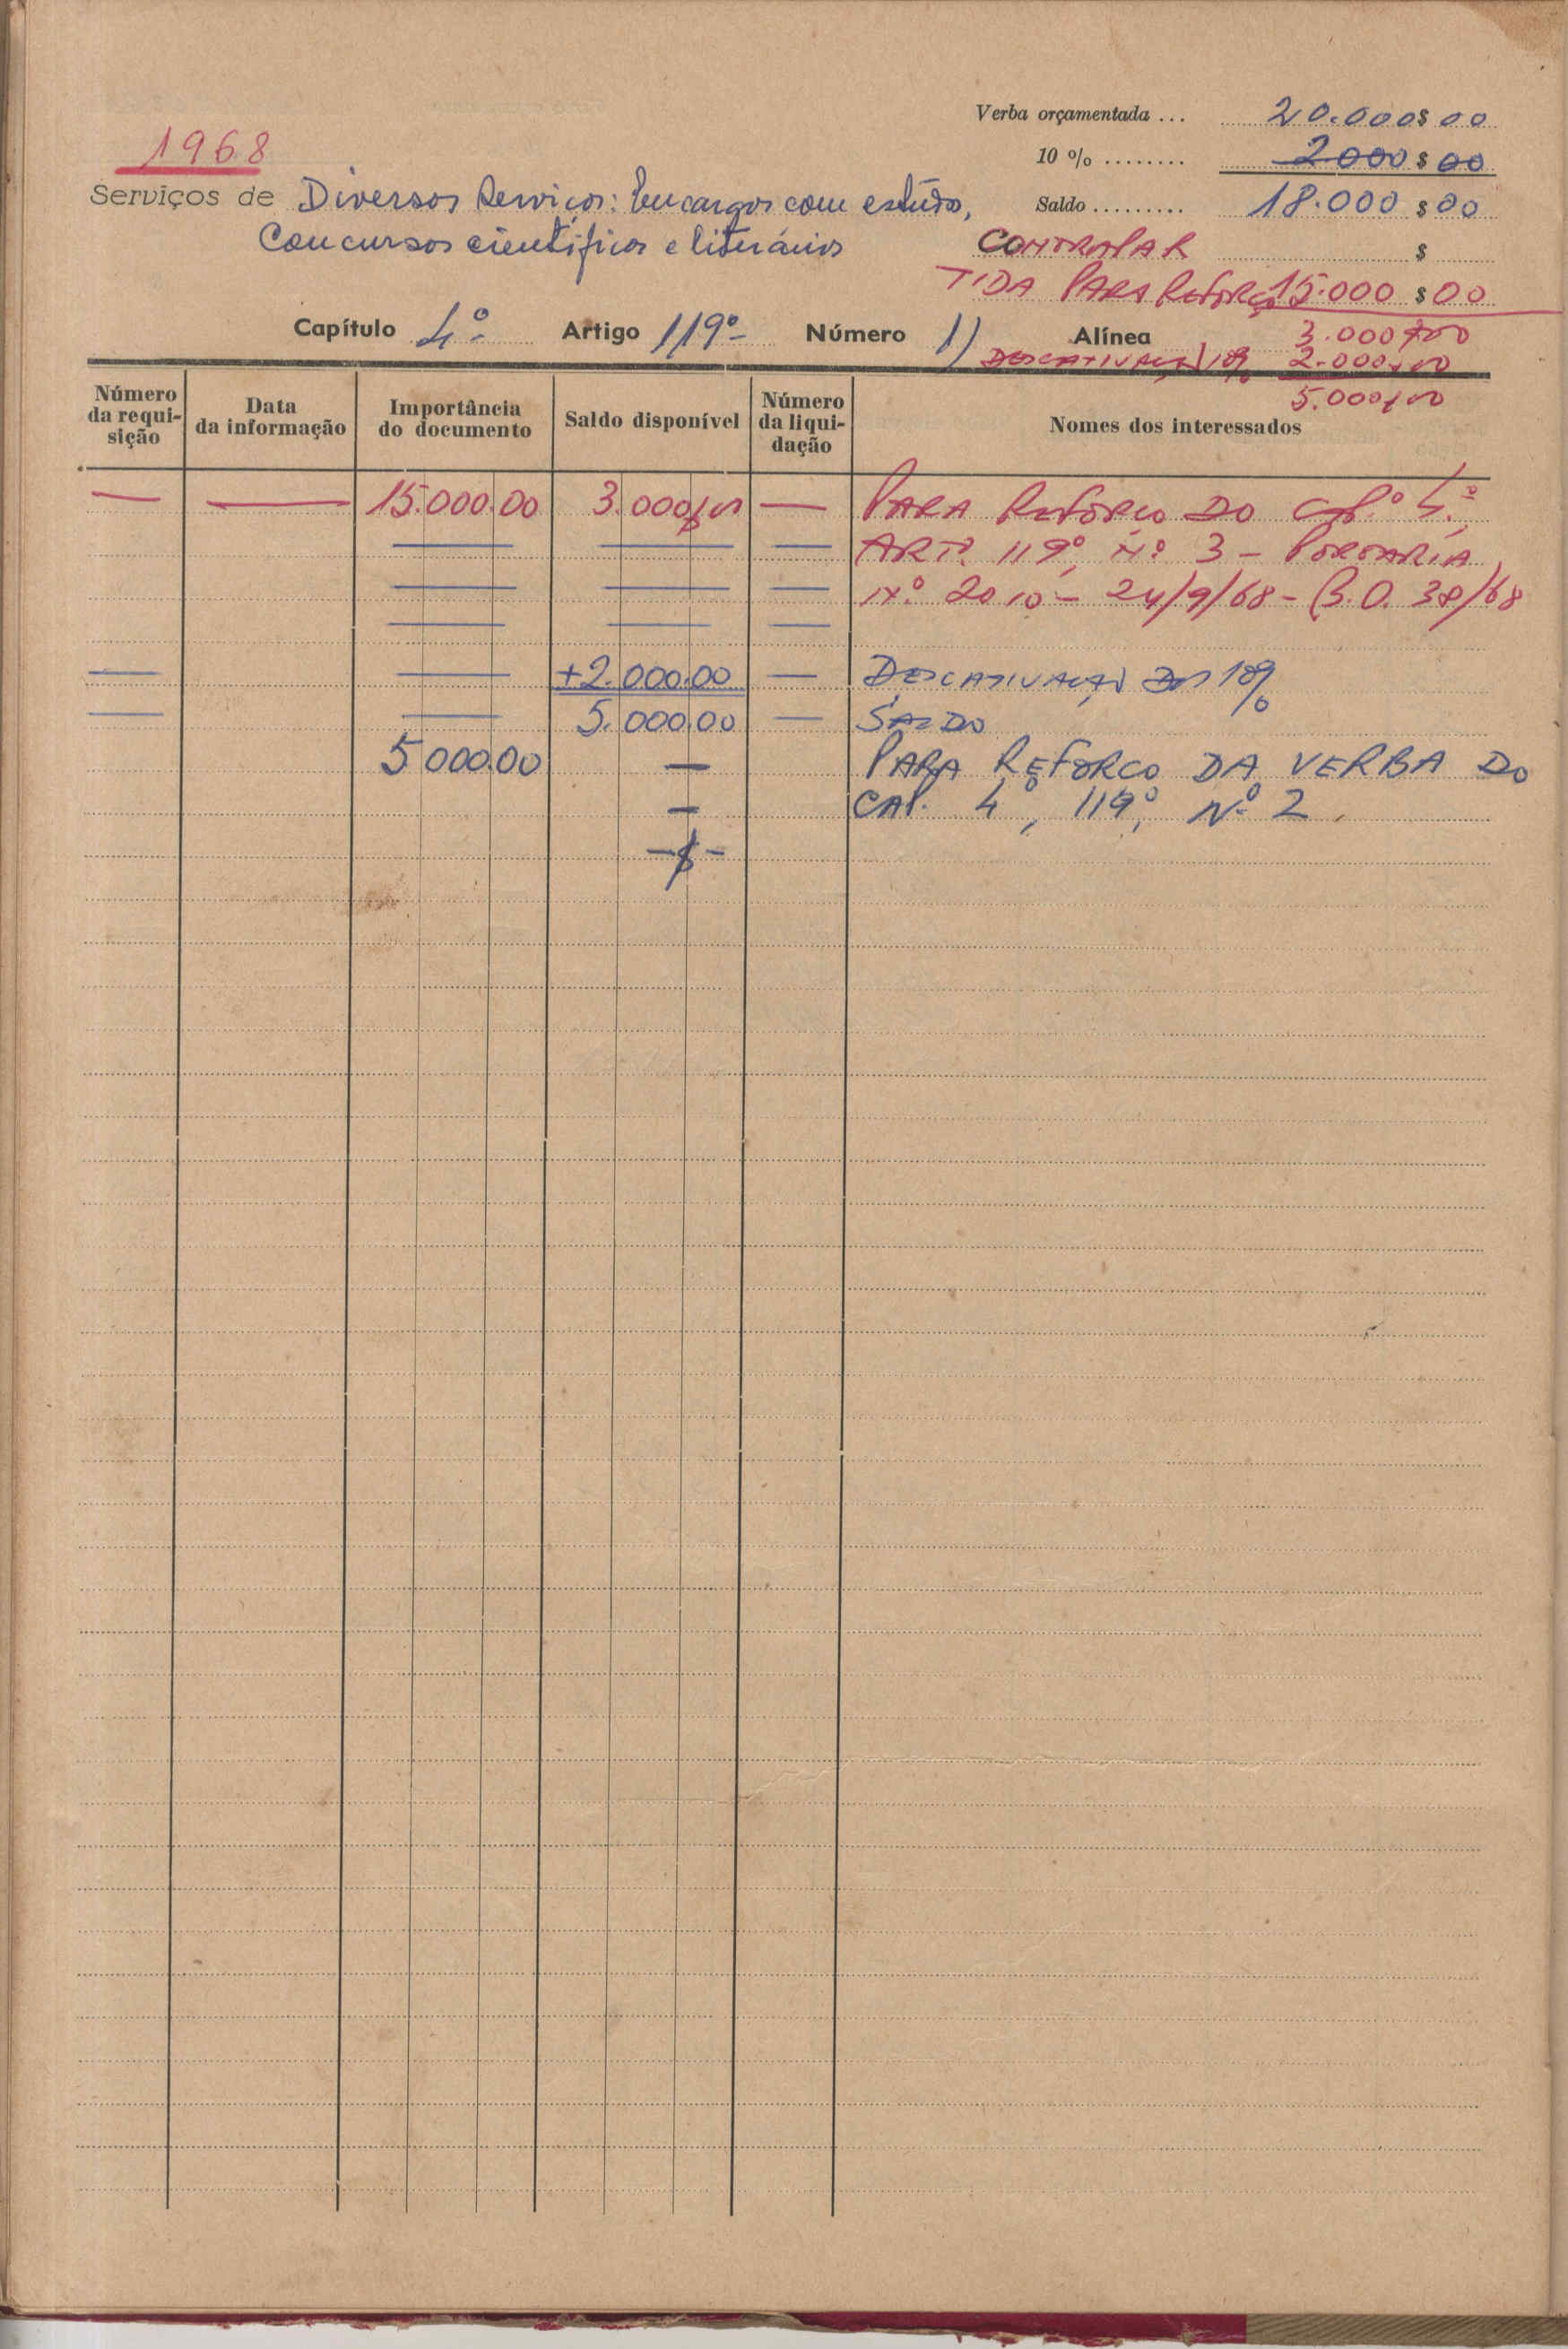 1968
Verba orçamentada ... 20.000$00
10 % ........ 2000$00
Serviços de Diversos Serviços: Encargos com estudos, Saldo ......... 18.000$00
Concursos científicos e literários CONTRAPAR $
TIDA PARA REFORÇO 15.000$00
Capítulo 4º Artigo 119º Número 1) Alínea 3.000$00
DESCATIVAÇÃO 10% 2.000$00
5.000$00
Número da requi-sição Data da informação Importância do documento Saldo disponível Número da liqui-dação Nomes dos interessados
— — 15.000.00 3.000$00 — PARA REFORÇO DO CAP.º 4.º
— — — ARTº. 119º, Nº 3 - PORTARIA
— — — Nº 2010 - 24/9/68 - B.O. 38/68
— — —
— — +2.000.00 — DESCATIVAÇÃO DOS 10%
— — 5.000.00 — SALDO
5000.00 — PARA REFORCO DA VERBA DO
— CAP. 4º, 119º, Nº 2.
-$-